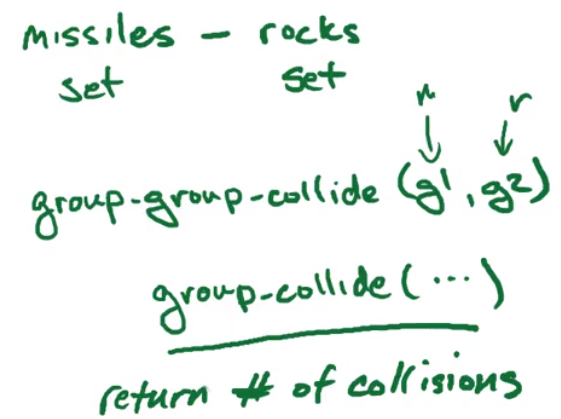 missiles – rocks
set set
m r
group-group-collide (g1, g2)
group-collide (...)
return # of collisions